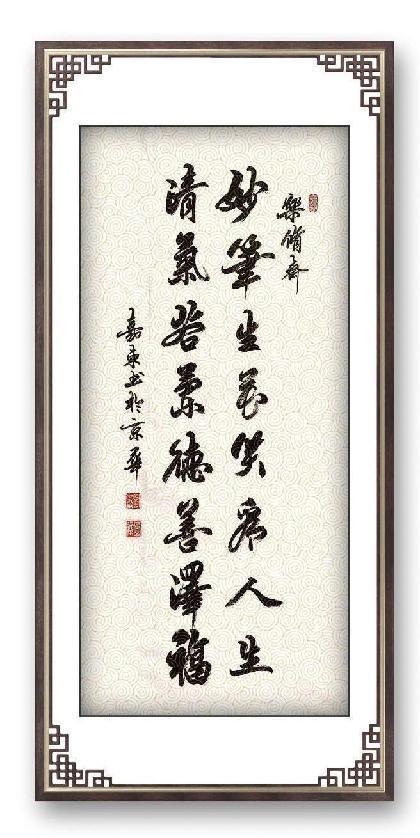 樂脩齋
妙筆生花笑人生
清氣若蘭德善澤福
嘉東书於京華